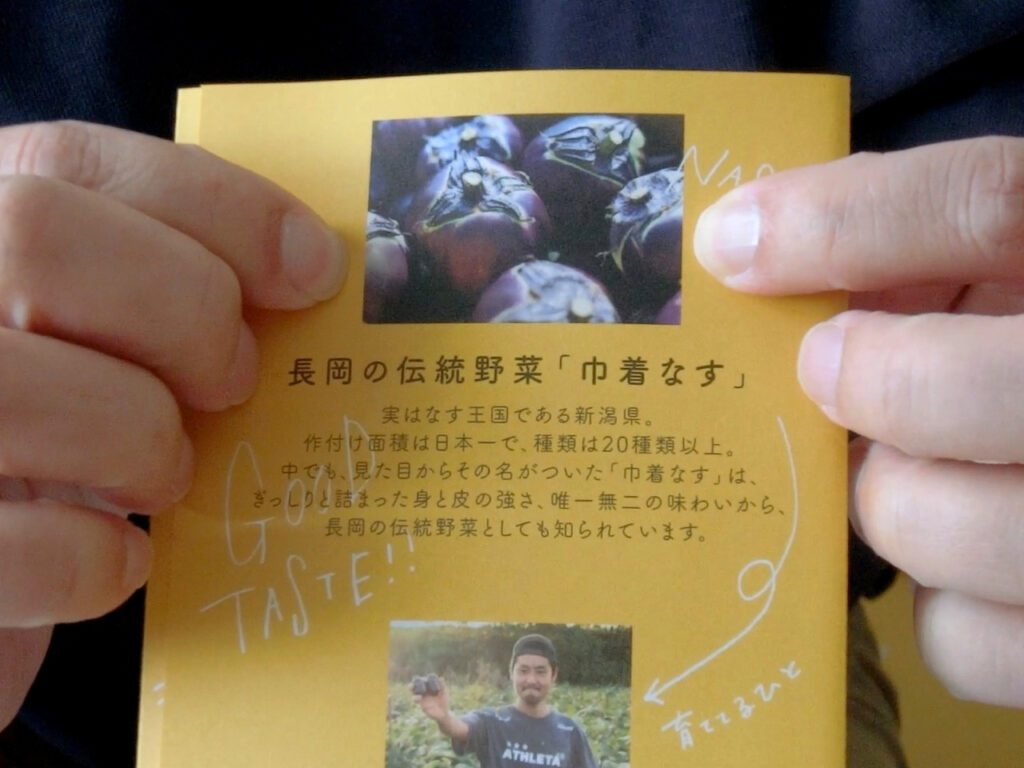 長岡の伝統野菜「巾着なす」
実はなす王国である新潟県。
作付け面積は日本一で、種類は20種類以上。
中でも、見た目からその名がついた「巾着なす」は、
ぎっしりと詰まった身と皮の強さ、唯一無二の味わいから、
長岡の伝統野菜としても知られています。
GOOD
TASTE!!
ATHLETA
育ててるひと